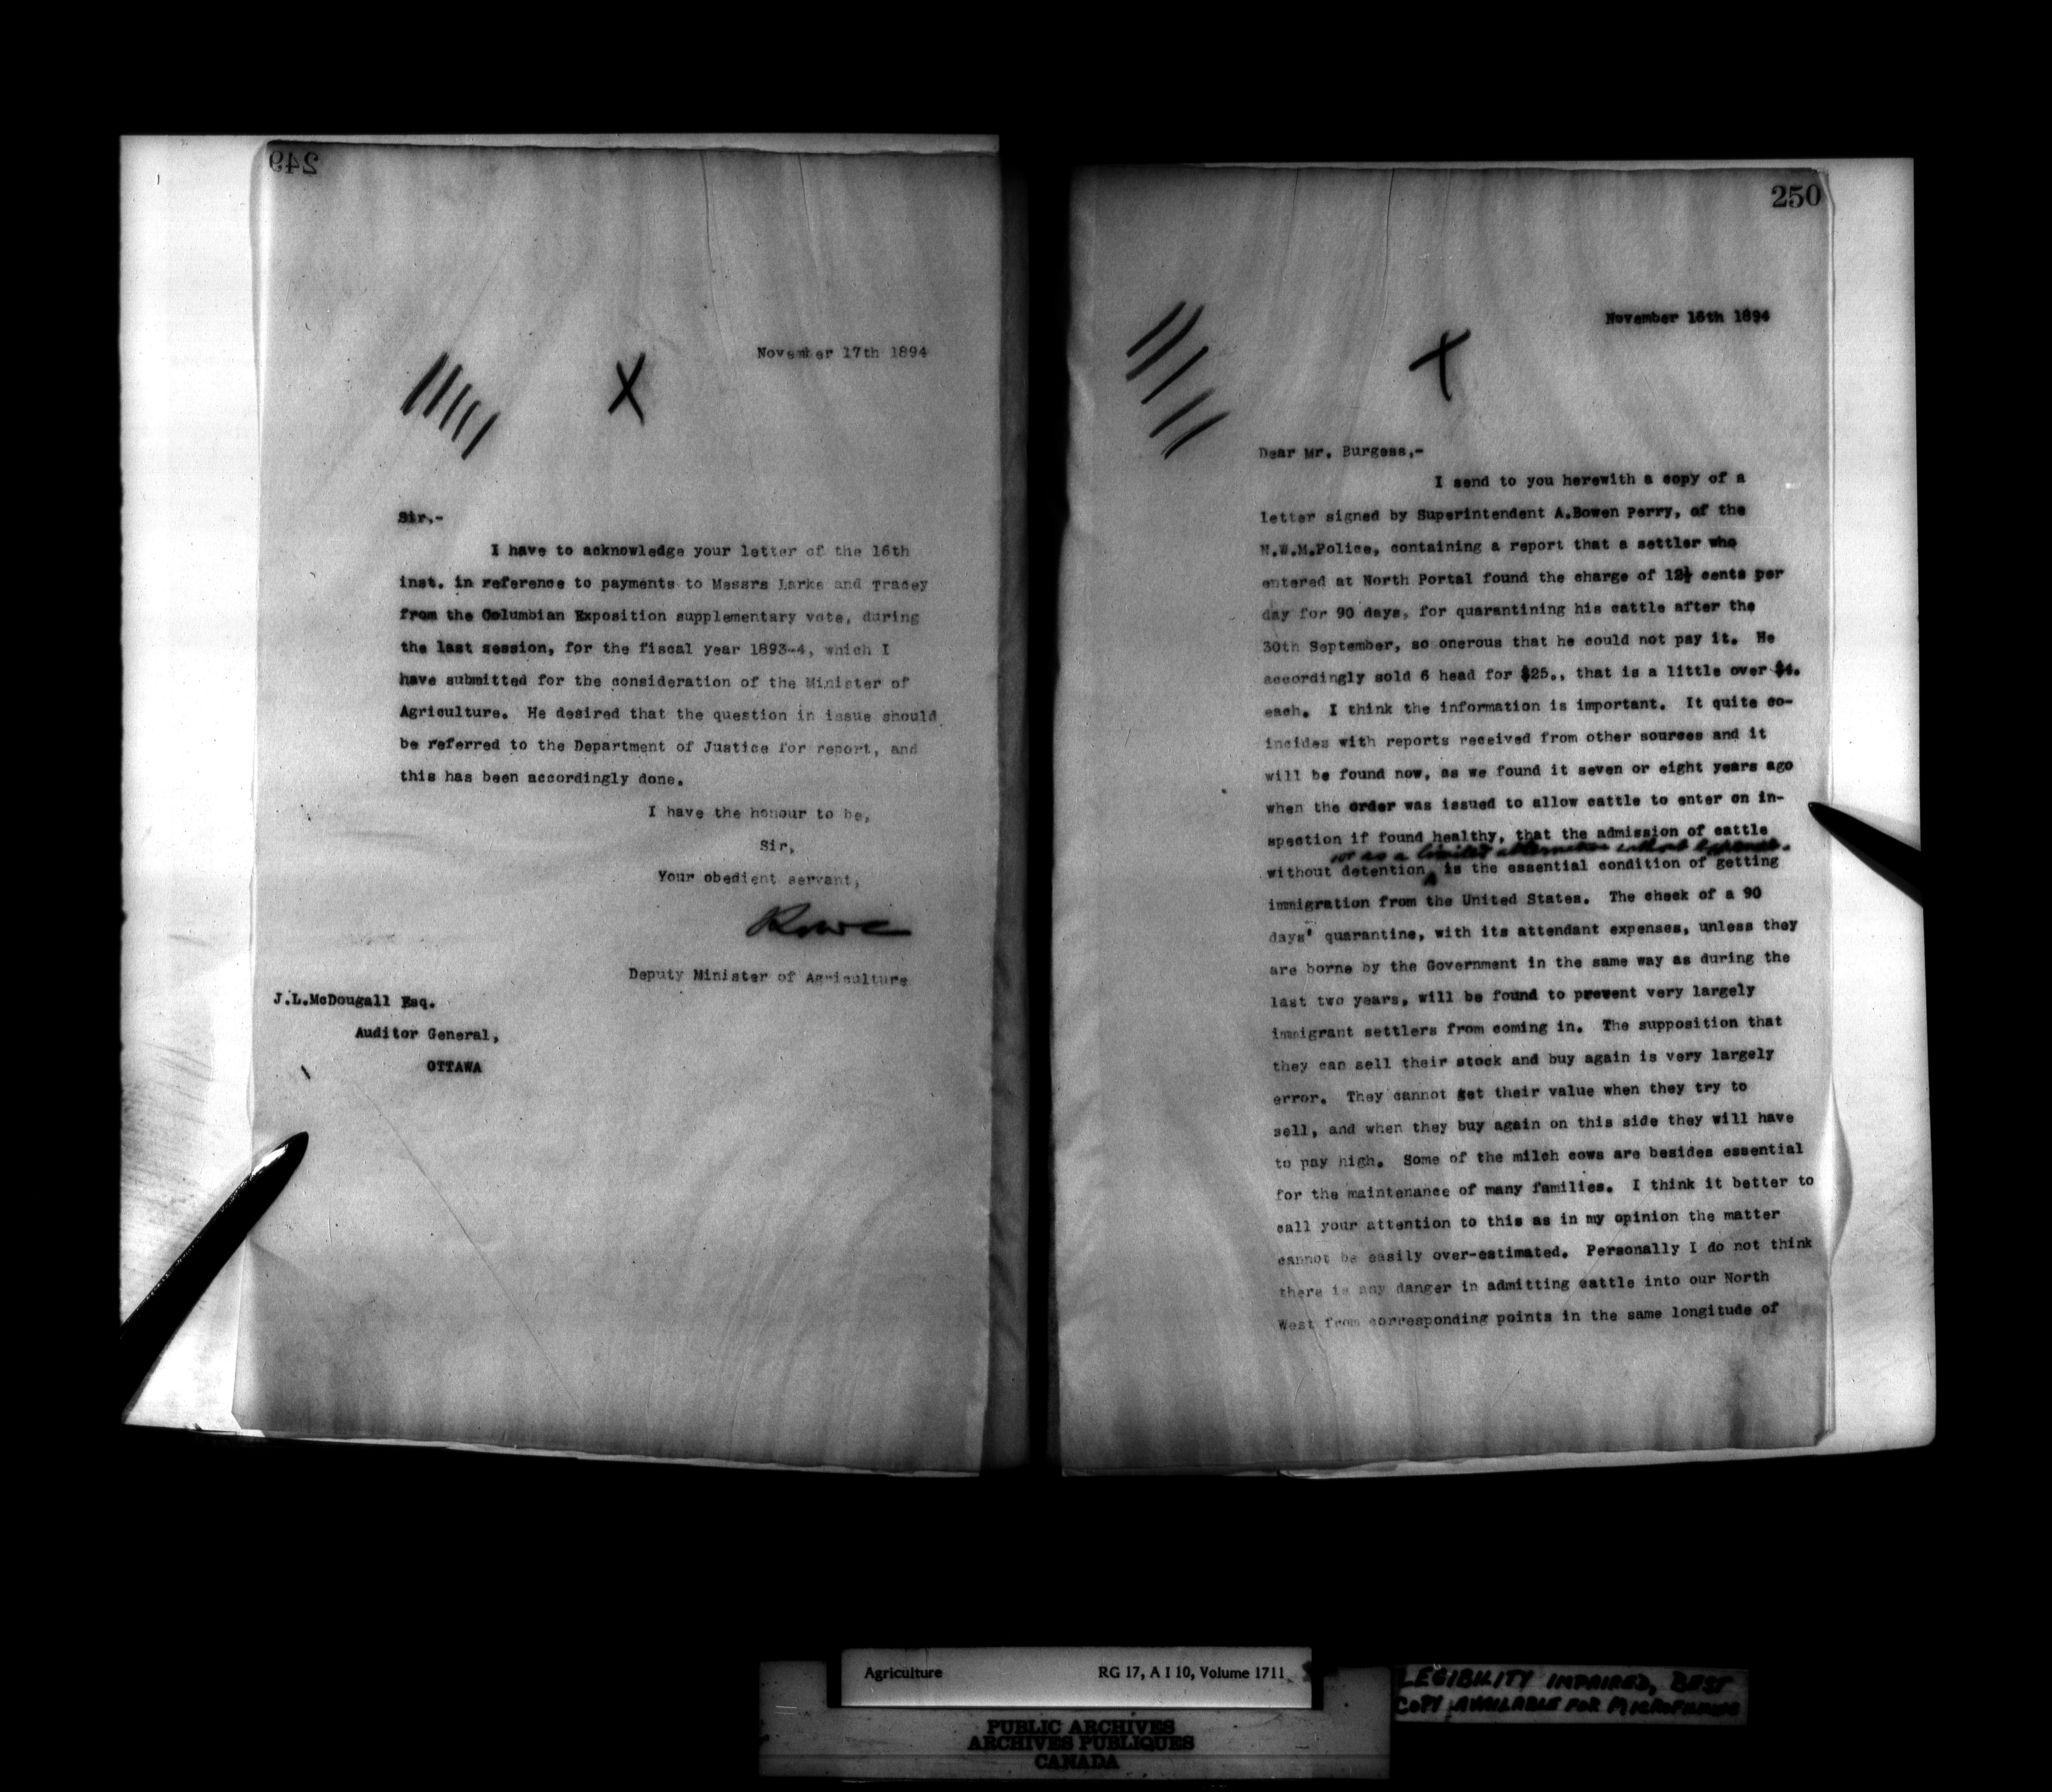 249
November 17th 1894
Sir,-
I have to acknowledge your letter of the 16th
inst. in reference to payments to Messrs Larke and Tracey
from the Columbian Exposition supplementary vote, during
the last session, for the fiscal year 1893-4, which I
have submitted for the consideration of the Minister of
Agriculture. He desired that the question in issue should
be referred to the Department of Justice for report, and
this has been accordingly done.
I have the honour to be,
Sir,
Your obedient servant,
Deputy Minister of Agriculture
J.L.McDougall Esq.
Auditor General,
OTTAWA
250
November 16th 1894
Dear Mr. Burgess,-
I send to you herewith a copy of a
letter signed by Superintendent A.Bowen Perry, of the
N.W.M.Police, containing a report that a settler who
entered at North Portal found the charge of 12½ cents per
day for 90 days, for quarantining his cattle after the
30th September, so onerous that he could not pay it. He
accordingly sold 6 head for $25., that is a little over $4.
each. I think the information is important. It quite co-
incides with reports received from other sources and it
will be found now, as we found it seven or eight years ago
when the order was issued to allow cattle to enter on in-
spection if found healthy, that the admission of cattle
or as a limited alternative without expense.
without detention is the essential condition of getting
immigration from the United States. The check of a 90
days' quarantine, with its attendant expenses, unless they
are borne by the Government in the same way as during the
last two years, will be found to prevent very largely
immigrant settlers from coming in. The supposition that
they can sell their stock and buy again is very largely
error. They cannot get their value when they try to
sell, and when they buy again on this side they will have
to pay high. Some of the milch cows are besides essential
for the maintenance of many families. I think it better to
call your attention to this as in my opinion the matter
cannot be easily over-estimated. Personally I do not think
there is any danger in admitting cattle into our North
West from corresponding points in the same longitude of
Agriculture RG 17, A I 10, Volume 1711
LEGIBILITY IMPAIRED, BEST
COPY AVAILABLE FOR MICROFILMING
PUBLIC ARCHIVES
ARCHIVES PUBLIQUES
CANADA